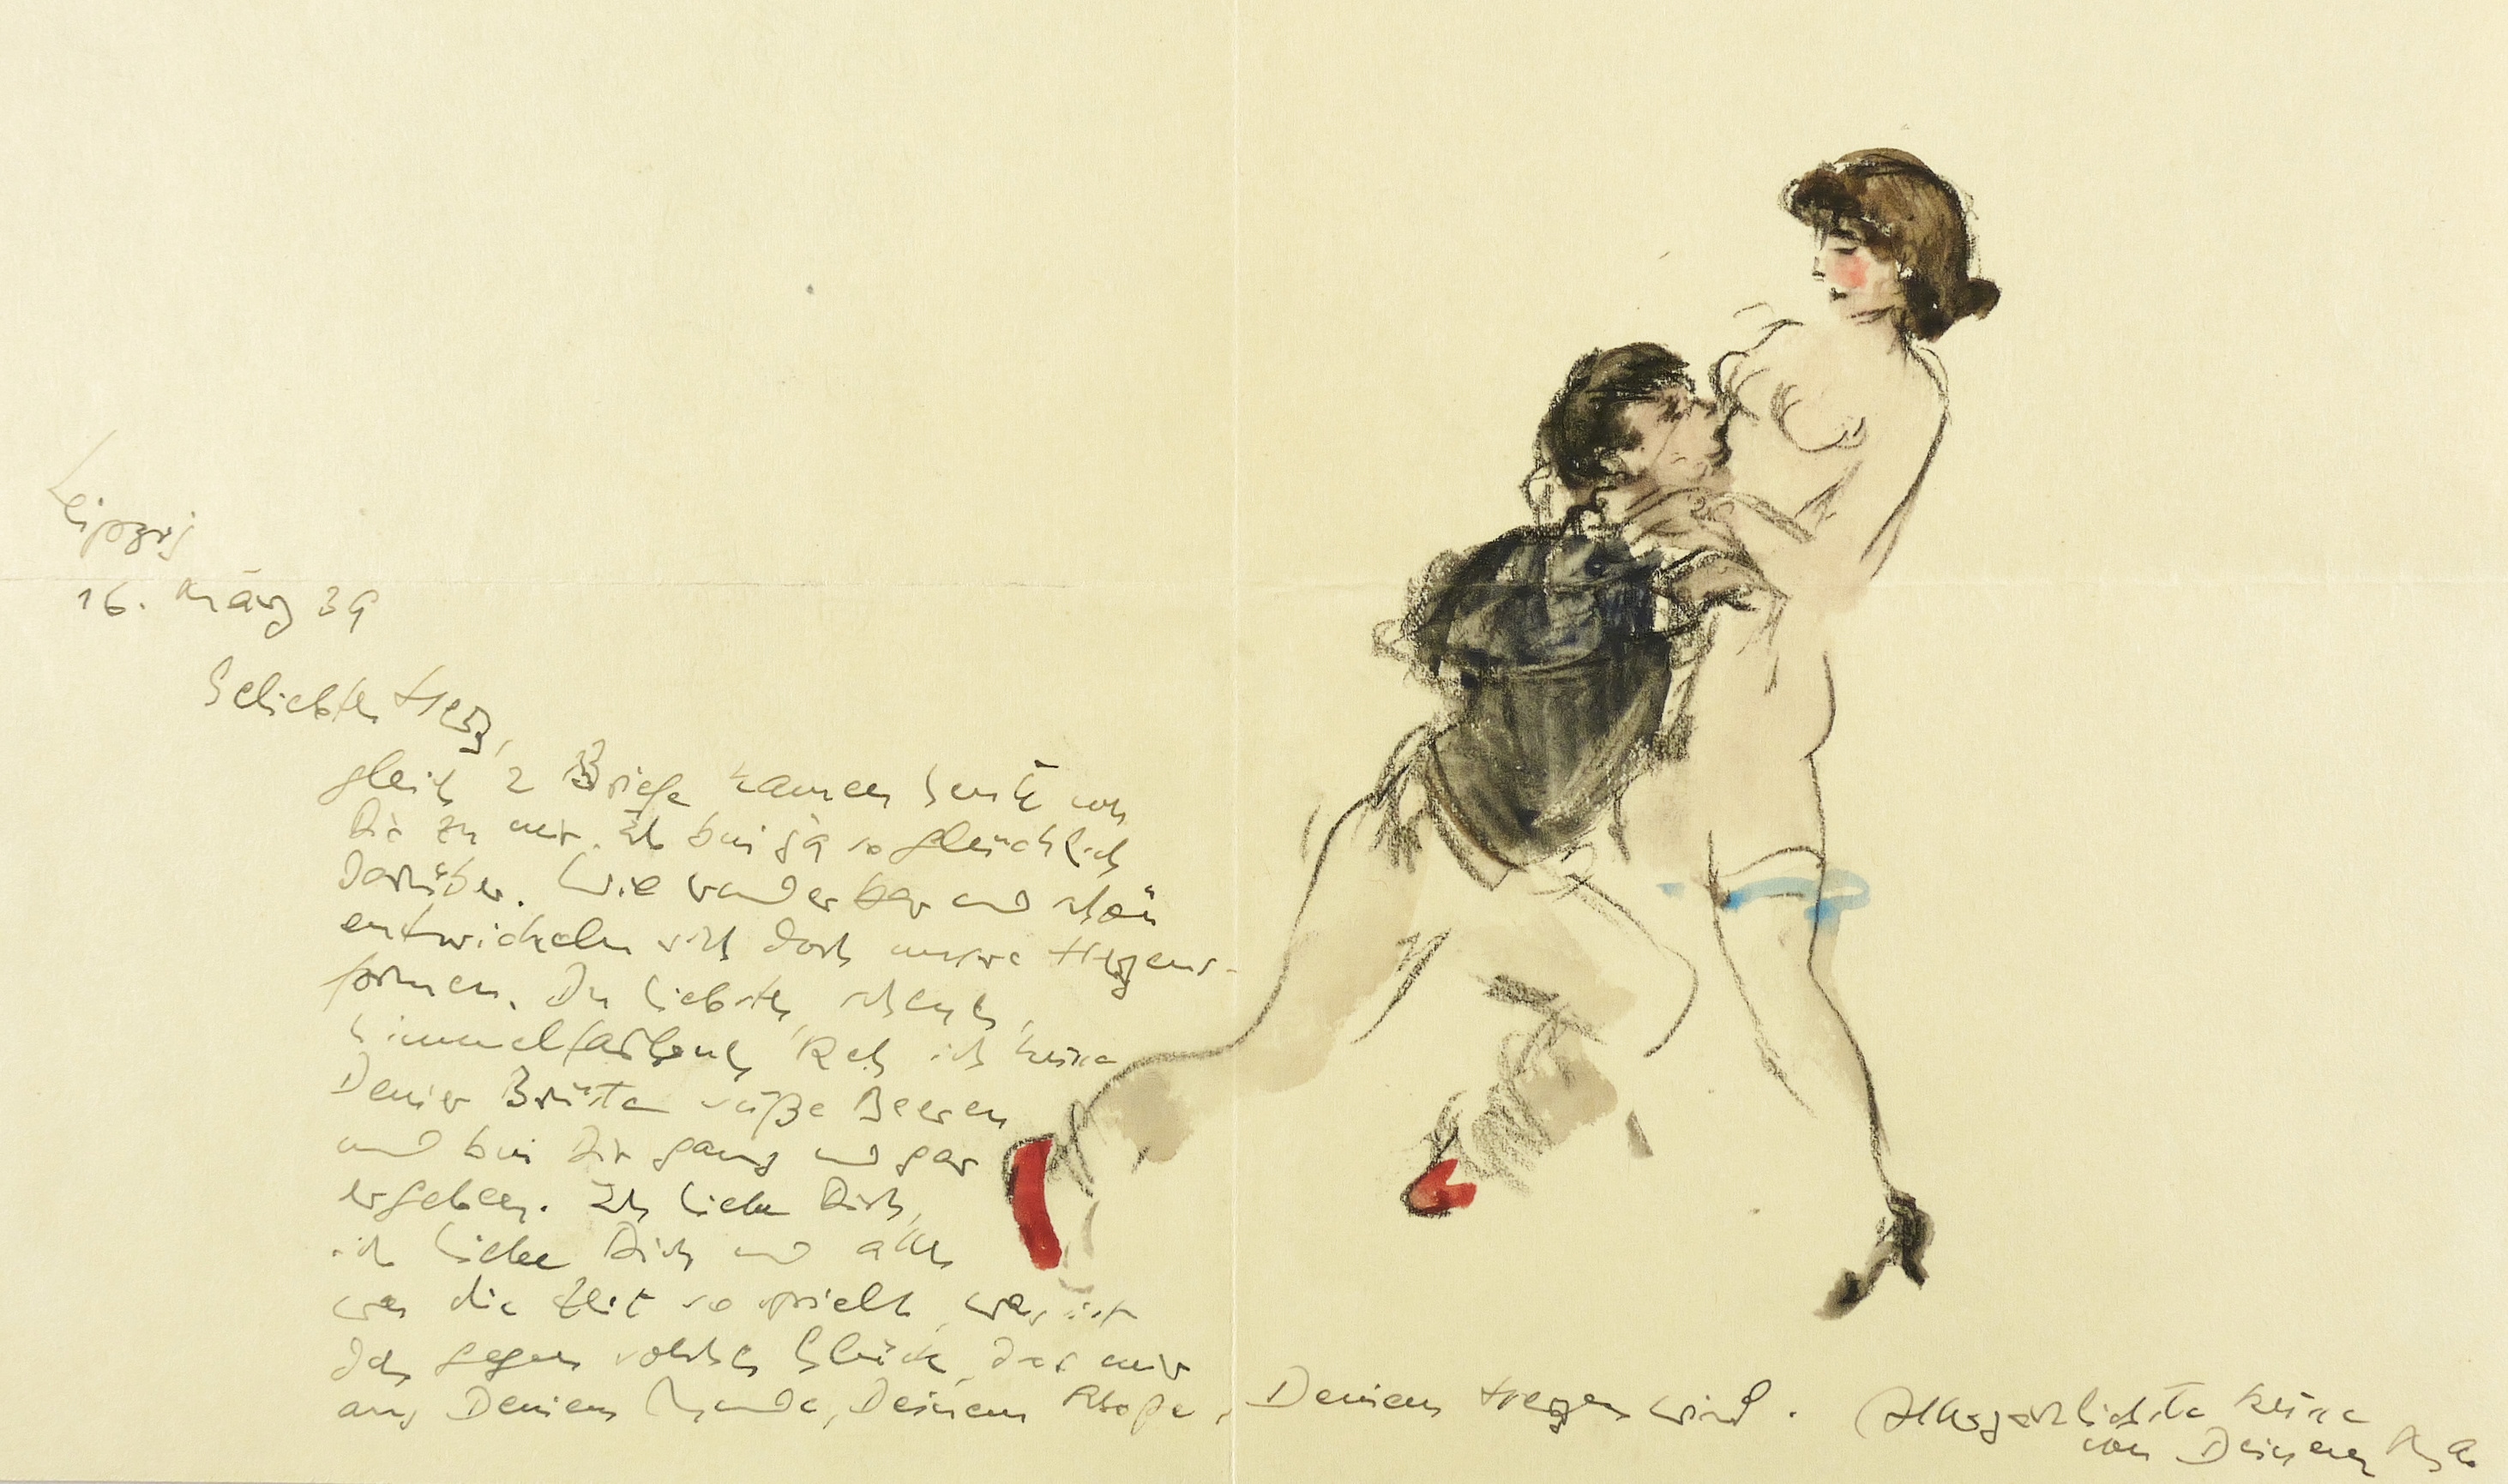 Leipzig
16. März 39
Geliebtes Herz,
gleich 2 Briefe kamen heute von
Dir zu mir. Ich bin ja so glücklich
darüber. Wie wunderbar und schön
entwickeln sich doch unsre Herzens-
formen. Du liebstes, schenes,
himmelfarbenes Reh ich küsse
Deiner Brüste süße Beeren
und bin Dir ganz und gar
ergeben. Ich liebe Dich,
ich liebe Dich und alles
was die Zeit so spielt, was ist
das gegen solches Glück, das mir
aus Deinem Munde, Deinem Deinem Herzen wird. Allerzärtlichste Küsse
von Deinem